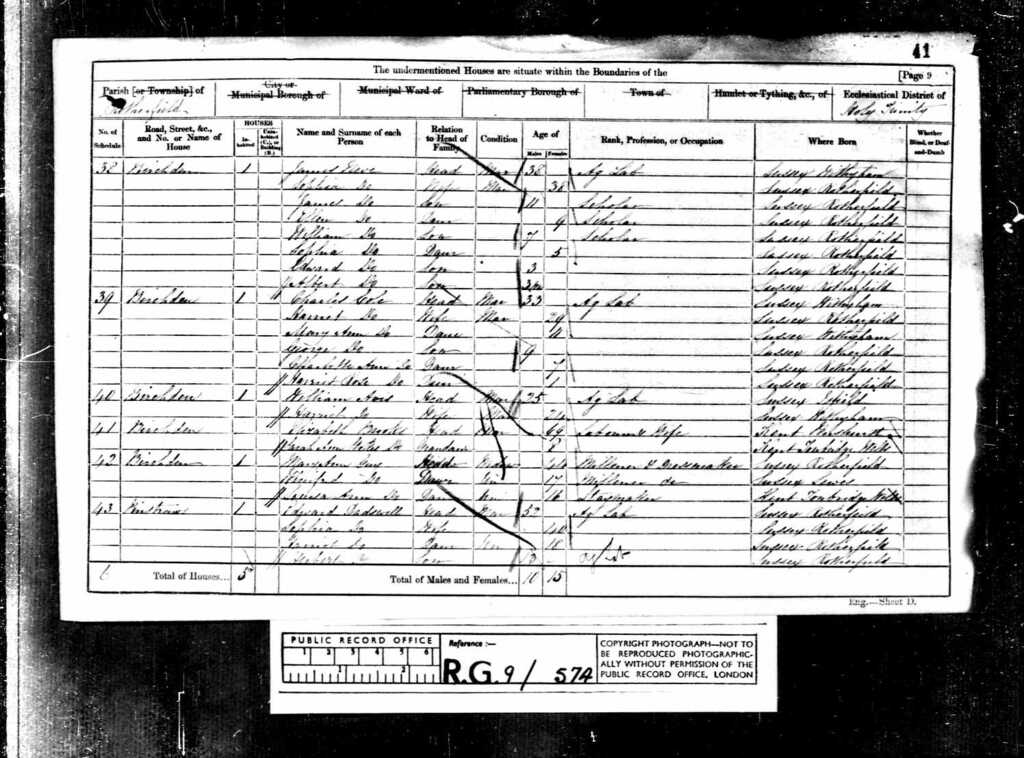 41
The undermentioned Houses are situate within the Boundaries of the
[Page 9
Parish [or Township] of
Rotherfield
City or Municipal Borough of
Municipal Ward of
Parliamentary Borough of
Town of
Hamlet or Tything, &c., of
Ecclesiastical District of
Holy
No. of Schedule
Road, Street, &c., and No. or Name of House
HOUSES
Inhabited
Uninhabited (U.), or Building (B.)
Name and Surname of each Person
Relation to Head of Family
Condition
Age of
Males
Females
Rank, Profession, or Occupation
Where Born
Whether Blind, or Deaf-and-Dumb
38 Birchden 1 James Head Mar 38 Ag Lab Sussex Withyham
Sophia Do Wife Mar 38 Sussex Rotherfield
James Do Son 11 Scholar Sussex Rotherfield
Ellen Do Daur 9 Scholar Sussex Rotherfield
William Do Son 7 Scholar Sussex Rotherfield
Sophia Do Daur 5 Sussex Rotherfield
Edward Do Son 3 Sussex Rotherfield
Albert Do Son Sussex Rotherfield
39 Birchden 1 Charles Cole Head Mar 33 Ag Lab Sussex Withyham
Harriet Do Wife Mar 29 Sussex Rotherfield
Mary Ann Do Daur Sussex Withyham
George Do Son 9 Sussex Rotherfield
Charlotte Ann Do Daur 7 Sussex Rotherfield
Harriet Rose Do Daur 1 Sussex Rotherfield
40 Birchden 1 William Head Mar 25 Ag Lab Sussex
Harriet Do Wife Mar 24 Sussex Withyham
41 Birchden Elizabeth Brooks Head 69 Wife Kent Penshurst
Sarah Ann Grandaur Kent Tonbridge Wells
42 Birchden 1 Widow Milliner & Dressmaker Sussex Rotherfield
Do Daur Un 17 Milliner do Sussex Lewes
Louisa Ann Do Daur Un 16 Staymaker Kent Tonbridge Wells
43 1 Edward Head Mar 52 Ag Lab Sussex Rotherfield
Sophia Do Wife 40 Sussex Rotherfield
Do Daur Un 18 Sussex Rotherfield
Herbert Do Son 13 Sussex Rotherfield
6 Total of Houses... 5 Total of Males and Females... 10 15
Eng.—Sheet D.
PUBLIC RECORD OFFICE
1 2 3 4 5 6
1 2
Reference :—
R.G. 9/ 574
COPYRIGHT PHOTOGRAPH—NOT TO
BE REPRODUCED PHOTOGRAPHIC-
ALLY WITHOUT PERMISSION OF THE
PUBLIC RECORD OFFICE, LONDON